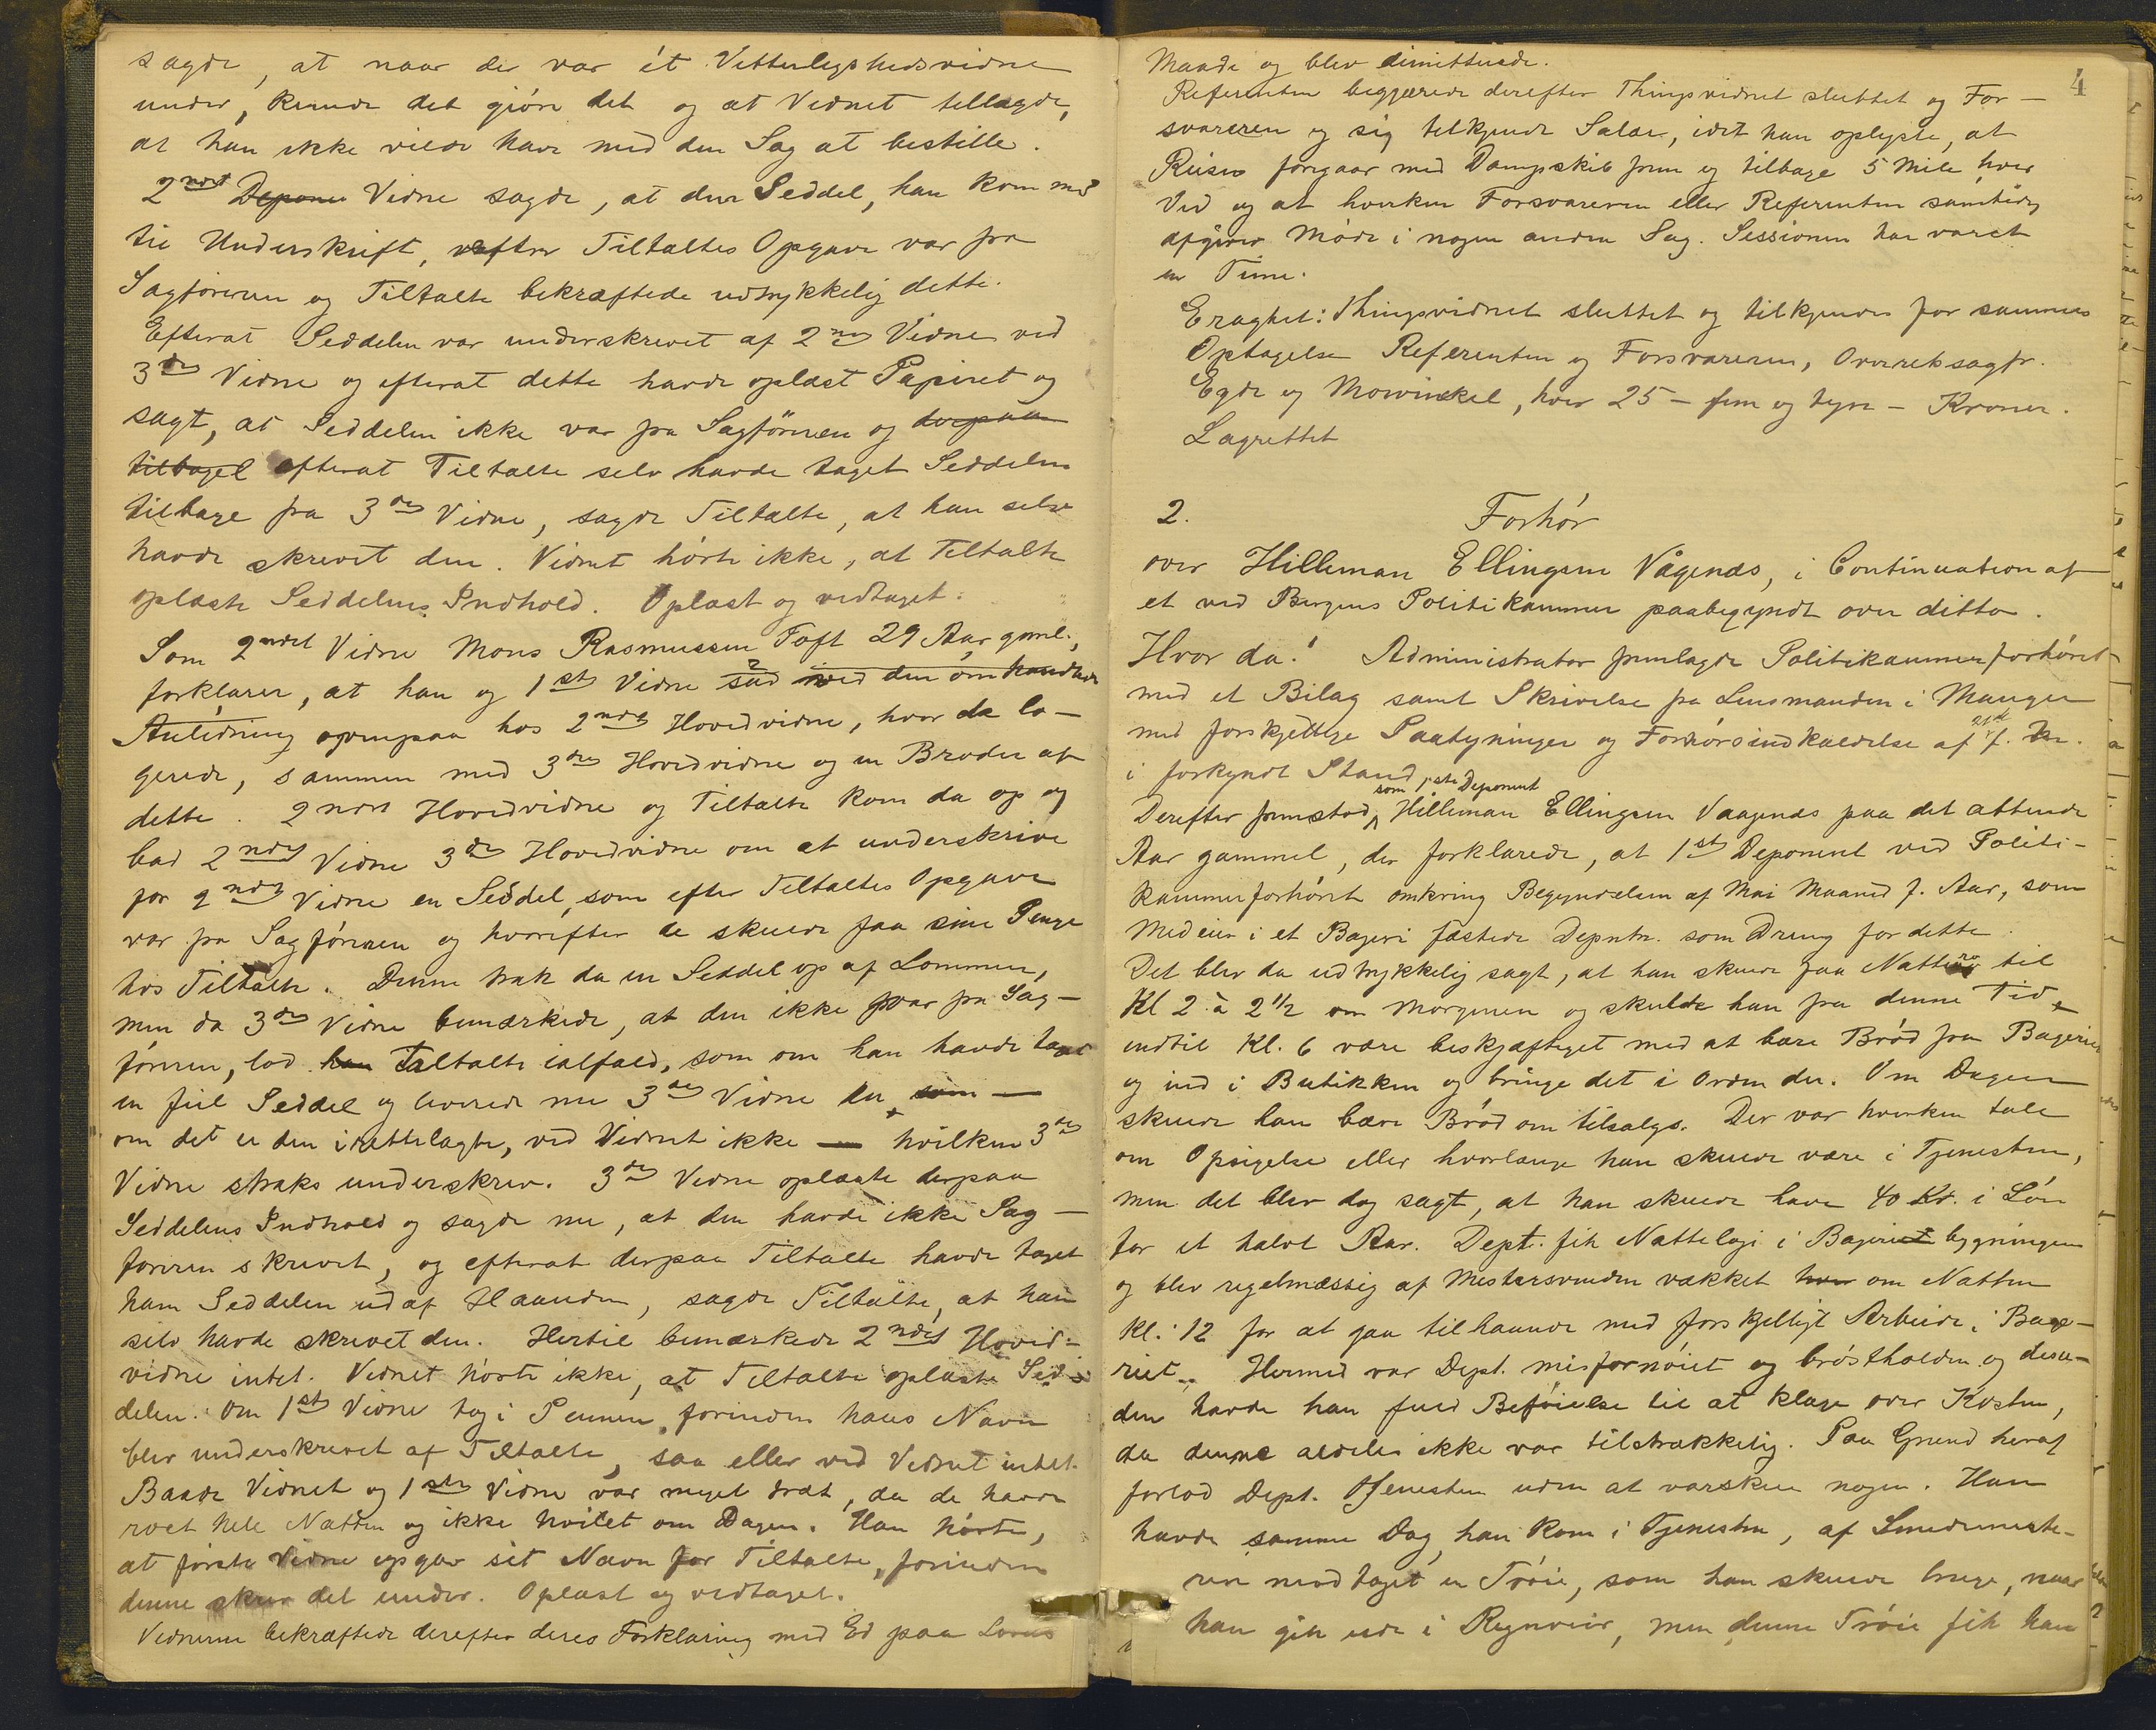 sagde, at naar der var ét Vitterlighedsvidne
under, kunde det gjöre det og at Vidnet tillagde,
at han ikke vilde have med den Sag at bestille.
2ndet Depone Vidne sagde, at den Seddel, han kom med
til Underskrift, efter Tiltaltes Opgave var fra
Sagföreren og Tiltalte bekræftede udtrykkelig dette.
Efterat Seddelen var underskrevet af 2net Vidne ved
3die Vidne og efterat dette havde oplæst Papiret og
sagt, at Seddelen ikke var fra Sagföreren og derpaa
tilbaget efterat Tiltalte selv havde taget Seddelen
tilbage fra 3die Vidne, sagde Tiltalte, at han selv
havde skrevet den. Vidnet hörte ikke, at Tiltalte
oplæste Seddelens Indhold. Oplæst og vedtaget.
Som 2ndet Vidne Mons Rasmussen Toft 29 Aar gml.,
forklarer, at han og 1ste Vidne sad ved den om handlede
Anledning ovenpaa hos 2ndet Hovedvidne, hvor de lo-
gerede, sammen med 3die Hovedvidne og en Broder af
dette. 2ndet Hovedvidne og Tiltalte kom da op og
bad 2ndet Vidne 3die Hovedvidne om at underskrive
for 2ndet Vidne en Seddel, som efter Tiltaltes Opgave
var fra Sagföreren og hvorefter de skulde faa sine Penge
hos Tiltalte. Denne trak da en Seddel op af Lommen,
men da 3die Vidne bemærkede, at den ikke var fra Sag-
föreren, lod han Tiltalte ialfald, som om han havde taget
en feil Seddel og leverede nu 3die Vidne en, som —
om det er den irettelagte, ved Vidnet ikke — hvilken 3die
Vidne straks underskrev. 3die Vidne oplæste derpaa
Seddelens Indhold og sagde nu, at den havde ikke Sag-
föreren skrevet, og efterat derpaa Tiltalte havde taget
ham Seddelen ud af Haanden, sagde Tiltalte, at han
selv havde skrevet den. Hertil bemærkede 2ndet Hoved-
vidne intet. Vidnet hörte ikke, at Tiltalte oplæste Sed-
delen. Om 1ste Vidne tog i Pennen, forinden hans Navn
blev underskrevet af Tiltalte, saa eller ved Vidnet intet.
Baade Vidnet og 1ste Vidne var meget træt, da de havde
roet hele Natten og ikke hvilet om Dagen. Han hörte,
at förste Vidne opgav sit Navn for Tiltalte, forinden
denne skrev det under. Oplæst og vedtaget.
Vidnerne bekræftede derefter deres Forklaring med Ed paa Lovens
4
Maade og blev dimitterede.
Referenten begjærede derefter Thingsvidnet sluttet og For-
svareren og sig tilkjendt Salær, idet han oplyste, at
Reisen foregaar med Dampskib frem og tilbage 5 Mile hver
Vei og at hverken Forsvareren eller Referenten samtidig
afgiver Möde i nogen anden Sag. Sessionen har varet
en Time.
Eragtet: Thingsvidnet sluttet og tilkjendes for sammes
Optagelse Referenten og Forsvareren, Overretssagfr.
Egde og Mowinckel, hver 25 – fem og tyve – Kroner.
Lagrettet
2. Forhör
over Hilleman Ellingsen Vågenæs, i Continuation af
et ved Bergens Politikammer paabegyndt over ditto.
Hvor da! Administrator fremlagde Politikammerforhöret
med et Bilag samt Skrivelse fra Lensmanden i Manger
med forskjellige Paategninger og Forhörsindkaldelse af 21de f. M.
i forkyndt Stand.
Derefter fremstod som 1ste Deponent Hilleman Ellingsen Vaagenæs paa det attende
Aar gammel, der forklarede, at 1ste Deponent ved Politi-
kammerforhöret omkring Begyndelsen af Mai Maaned f. Aar, som
Medeier i et Bageri fæstede Depntn. som Dreng for dette.
Det blev da udtrykkelig sagt, at han skulde faa Nattero til
Kl 2 à 2 1/2 om Morgenen og skulde han fra denne Tid
indtil Kl. 6 være beskjæftiget med at bære Bröd fra Bageriet
og ind i Butikken og bringe det i Orden der. Om Dagen
skulde han bære Bröd om tilsalgs. Der var hverken tale
om Opsigelse eller hvorlænge han skulde være i Tjenesten,
men det blev dog sagt, at han skulde have 40 Kr. i Lön
for et halvt Aar. Dept. fik Natteloji i Bageribygningen
og blev regelmæssig af Mestersvenden vækket hver om Natten
Kl. 12 for at gaa tilhaande med forskjelligt Arbeide i Bage-
riet. Hermed var Dept. misfornöiet og bröstholden og desu-
den havde han fuld Beföielse til at klage over Kosten,
da denne aldeles ikke var tilstrækkelig. Paa Grund heraf
forlod Dept. Tjenesten uden at varskue nogen. Han
havde samme Dag, han kom i Tjenesten, af Smedemeste-
ren modtaget en Tröie, som han skulde bruge, naar
han gik ude i Regnveir, men denne Tröie fik han